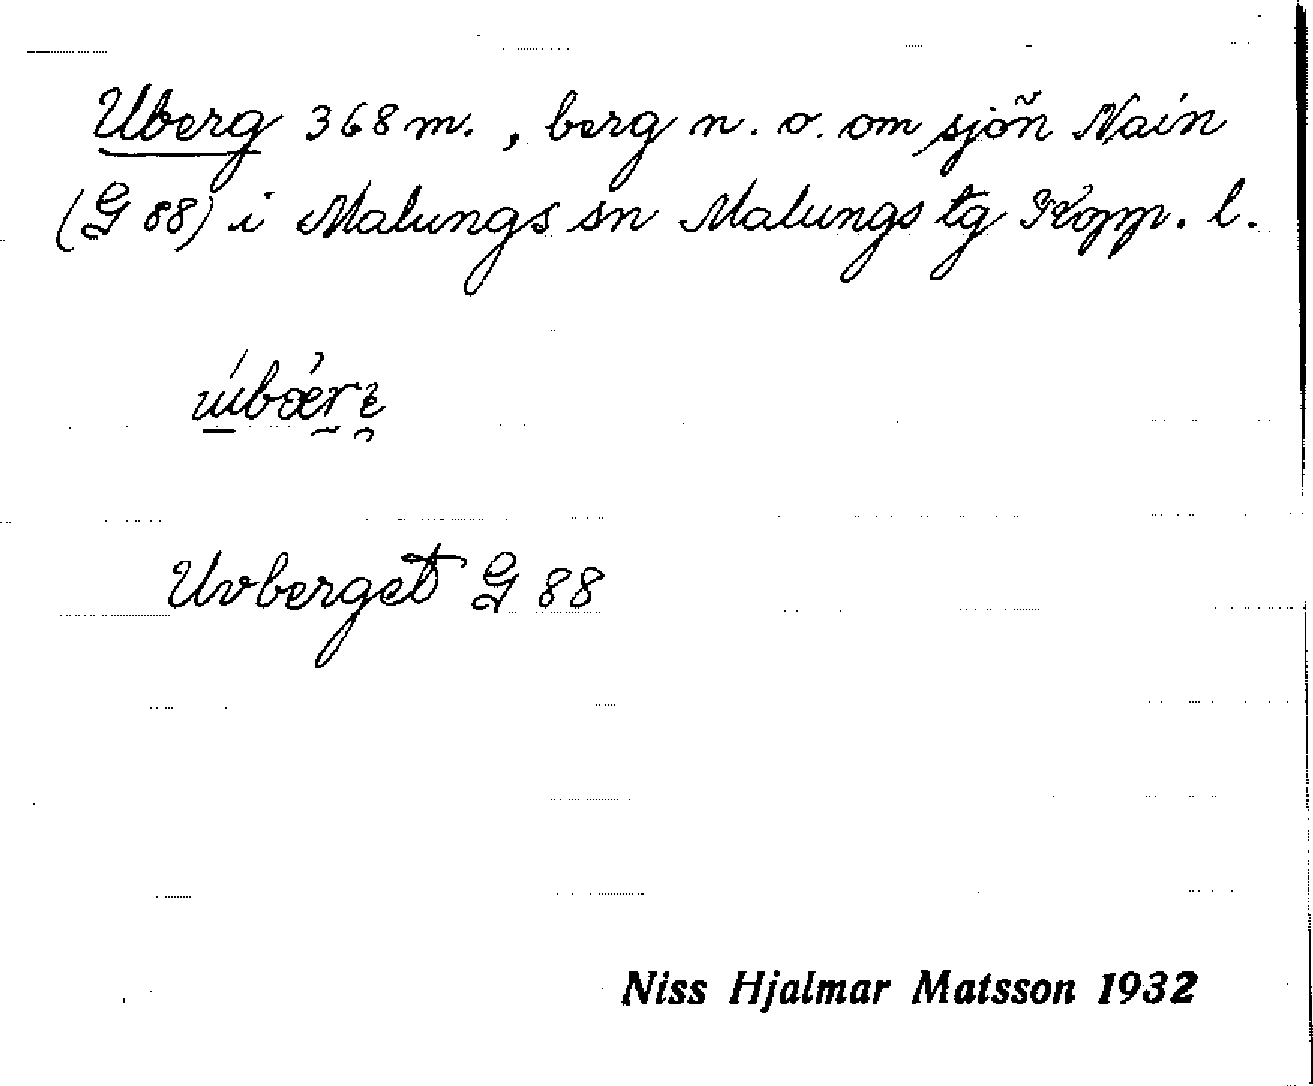 Uberg 368 m., berg n. o. om sjön Nain
(G 88) i Malungs sn Malungs tg Kopp. l.
Uvberget G 88
Niss Hjalmar Matsson 1932